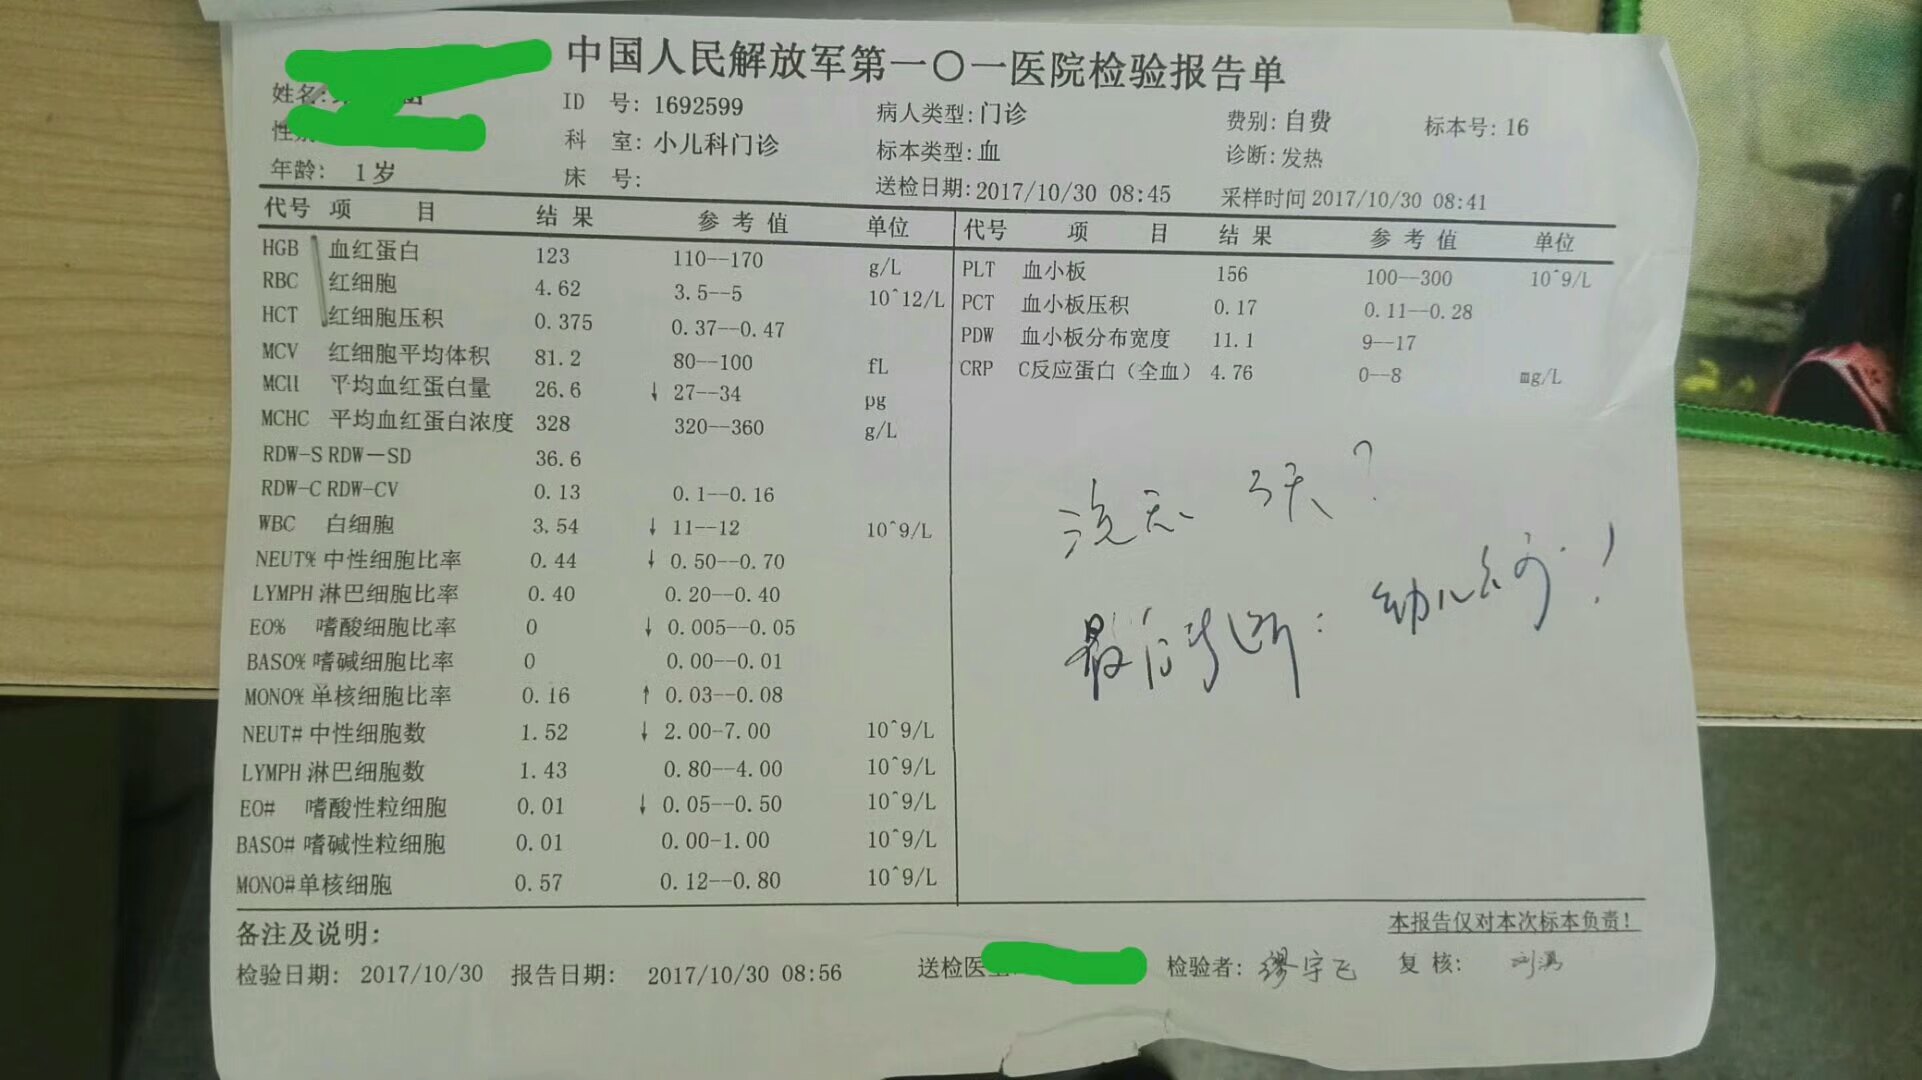 中国人民解放军第一〇一医院检验报告单
姓名: ID 号: 1692599 病人类型:门诊 费别:自费 标本号:16
科 室:小儿科门诊 标本类型:血 诊断:发热
年龄: 1岁 床 号: 送检日期:2017/10/30 08:45 采样时间2017/10/30 08:41
代号 项 目 结 果 参 考 值 单位 代号 项 目 结 果 参 考 值 单位
HGB 血红蛋白 123 110--170 g/L PLT 血小板 156 100--300 10^9/L
RBC 红细胞 4.62 3.5--5 10^12/L PCT 血小板压积 0.17 0.11--0.28
HCT 红细胞压积 0.375 0.37--0.47 PDW 血小板分布宽度 11.1 9--17
MCV 红细胞平均体积 81.2 80--100 fL CRP C反应蛋白（全血） 4.76 0--8 mg/L
MCH 平均血红蛋白量 26.6 ↓ 27--34 pg
MCHC 平均血红蛋白浓度 328 320--360 g/L
RDW-S RDW-SD 36.6
RDW-C RDW-CV 0.13 0.1--0.16
WBC 白细胞 3.54 ↓ 11--12 10^9/L
NEUT% 中性细胞比率 0.44 ↓ 0.50--0.70
LYMPH 淋巴细胞比率 0.40 0.20--0.40
EO% 嗜酸细胞比率 0 ↓ 0.005--0.05
BASO% 嗜碱细胞比率 0 0.00--0.01
MONO% 单核细胞比率 0.16 ↑ 0.03--0.08
NEUT# 中性细胞数 1.52 ↓ 2.00-7.00 10^9/L
LYMPH 淋巴细胞数 1.43 0.80--4.00 10^9/L
EO# 嗜酸性粒细胞 0.01 ↓ 0.05--0.50 10^9/L
BASO# 嗜碱性粒细胞 0.01 0.00-1.00 10^9/L
MONO# 单核细胞 0.57 0.12--0.80 10^9/L
3天?
最后诊断: 幼儿急疹!
备注及说明: 本报告仅对本次标本负责!
检验日期: 2017/10/30 报告日期: 2017/10/30 08:56 送检医 检验者: 缪宇飞 复 核: